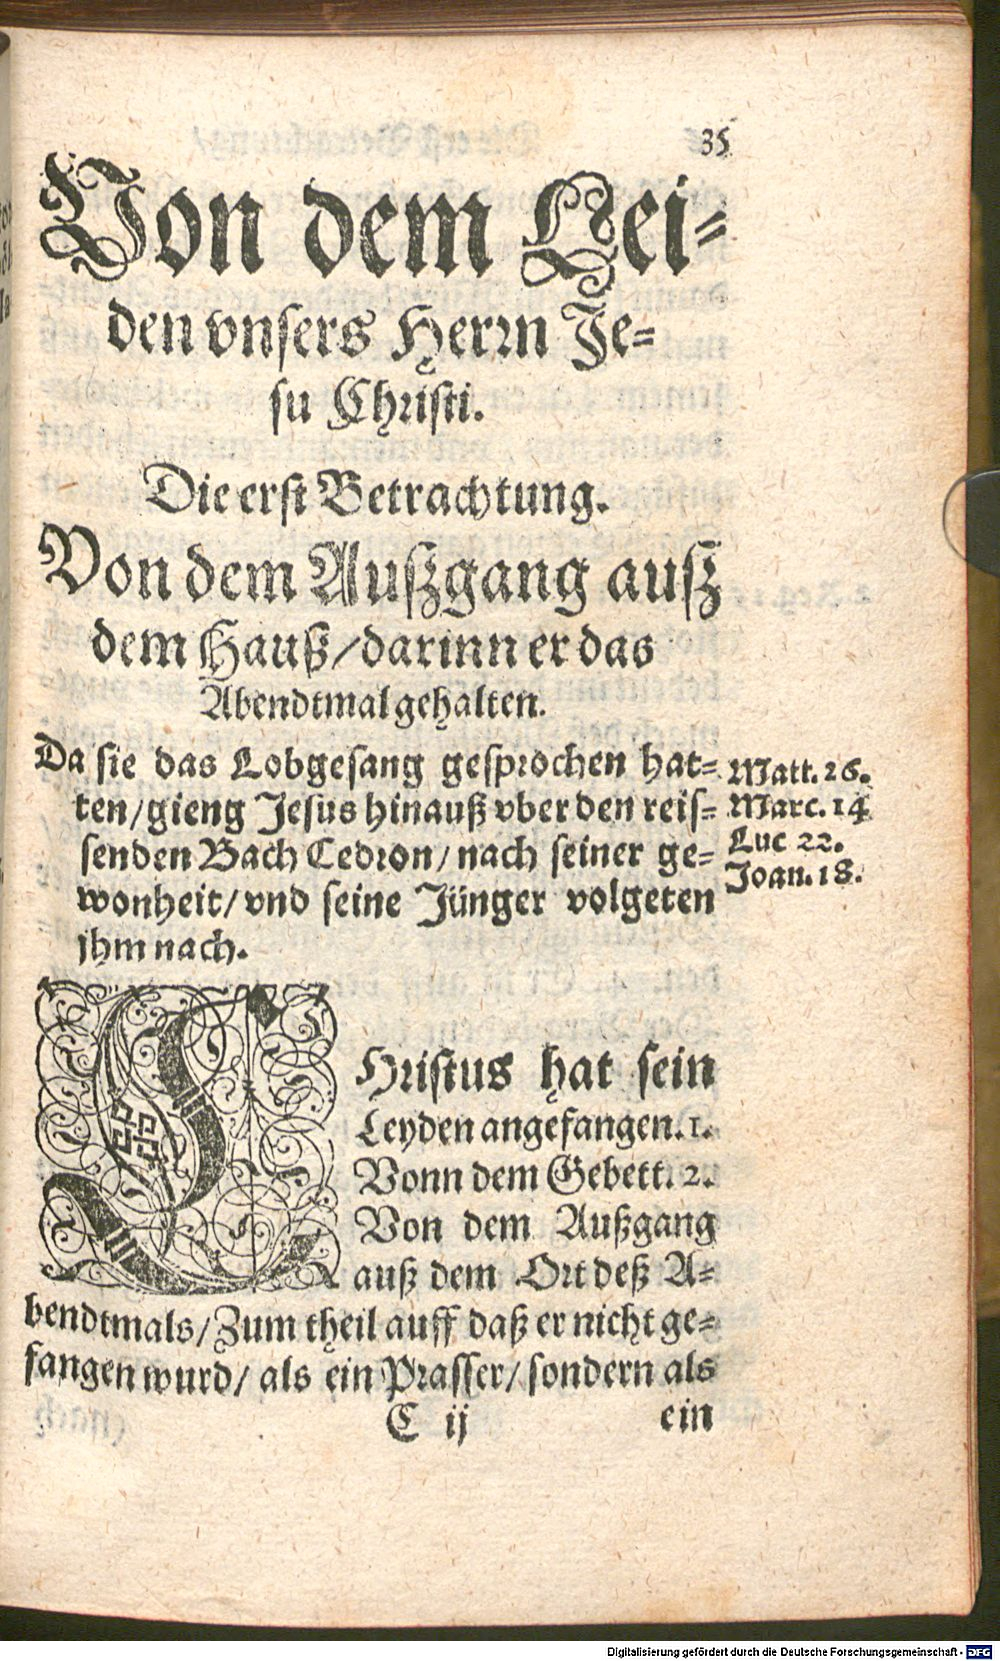 35
Von dem Lei-
den vnsers Herrn Je-
su Christi.
Die erst Betrachtung.
Von dem Außgang auß
dem Hauß/darinn er das
Abendtmal gehalten.
Da sie das Lobgesang gesprochen hat-
ten/gieng Jesus hinauß vber den reis-
senden Bach Cedron/nach seiner ge-
wonheit/vnd seine Jünger volgeten
jhm nach.
Matt. 26.
Marc. 14
Luc 22.
Joan. 18.
CHristus hat sein
Leyden angefangen. 1.
Vonn dem Gebett. 2.
Von dem Außgang
auß dem Ort deß A-
bendtmals/Zum theil auff daß er nicht ge-
fangen wurd/als ein Prasser/sondern als
C ij ein
Digitalisierung gefördert durch die Deutsche Forschungsgemeinschaft - DFG